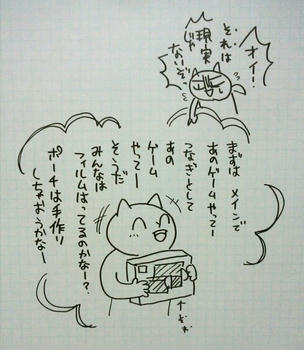 オイー!
それは
現実じゃ
ないぞっ
まずは メインで
あのゲームやってー
つなぎとして
あの
ゲーム
やってー
そうだ
みんなは
フィルムはってるのかなー?
ポーチは手作り
しちゃおうかなー